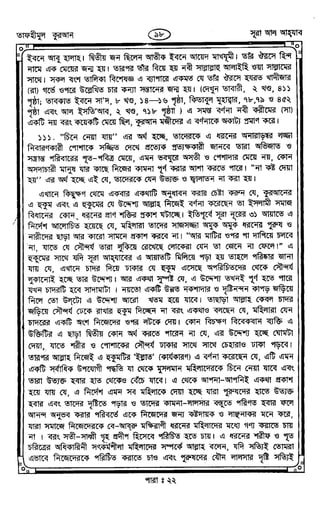 তাফহীমুল কুরআন
৯৮
সূরা আল আহযাব
ইবনে আবু হালাহ। দ্বিতীয় জন ছিলেন আতীক ইবনে আয়েদ মাখযুমী। তাঁর ঔরসে হিন্দ
নামে এক মেয়ের জন্ম হয়। তারপর তাঁর বিয়ে হয় নবী সাল্লাল্লাহু আলাইহি ওয়া সাল্লামের
সাথে। সকল বংশ তালিকা বিশেষজ্ঞ এ ব্যাপারে একমত যে তাঁর ঔরসে হযরত খাদীজার
(রা) গর্ভে ওপরে উল্লেখিত চার কন্যা সন্তানের জন্ম হয়। (দেখুন তাবারী, ২ খণ্ড, ৪১১
পৃষ্ঠা; তাবাকাত ইবনে সা'দ, ৮ খণ্ড, ১৪—১৬ পৃষ্ঠা, কিতাবুল মুহাব্বার, ৭৮,৭৯ ও ৪৫২
পৃষ্ঠা এবং আল ইসতি'আব, ২ খণ্ড, ৭১৮ পৃষ্ঠা।) এ সমস্ত বর্ণনা নবী করীমের (সা)
একটি নয় বরং কয়েকটি মেয়ে ছিল, কুরআন মজীদের এ বর্ণনাকে অকাট্য প্রমাণ করে।
১১১. "চিনে নেয়া যায়" এর অর্থ হচ্ছে, তাদেরকে এ ধরনের অনাড়ম্বর লজ্জা
নিবারণকারী পোশাকে সজ্জিত দেখে প্রত্যেক প্রত্যক্ষকারী জানবে তারা অভিজাত ও
সম্ভ্রান্ত পরিবারের পূত-পবিত্র মেয়ে, এমন ভবঘুরে অসতী ও পেশাদার মেয়ে নয়, কোন
অসদাচারী মানুষ যার কাছে নিজের কামনা পূর্ণ করার আশা করতে পারে। "না কষ্ট দেয়া
হয়" এর অর্থ হচ্ছে এই যে, তাদেরকে যেন উত্যক্ত ও জ্বালাতন না করা হয়।
এখানে কিছুক্ষণ থেমে একবার একথাটি অনুধাবন করার চেষ্টা করুন যে, কুরআনের
এ হুকুম এবং এ হুকুমের যে উদ্দেশ্য আল্লাহ নিজেই বর্ণনা করেছেন তা ইসলামী সমাজ
বিধানের কোন্ ধরনের প্রাণ শক্তির প্রকাশ ঘটাচ্ছে। ইতিপূর্বে সূরা নূরের ৩১ আয়াতে এ
নির্দেশ আলোচিত হয়েছে যে, মহিলারা তাদের সাজসজ্জা অমুক অমুক ধরনের পুরুষ ও
নারীদের ছাড়া আর কারো সামনে প্রকাশ করবে না। "আর মাটির ওপর পা দাপিয়ে চলবে
না, যাতে যে সৌন্দর্য তারা লুকিয়ে রেখেছে লোকেরা যেন তা জেনে না ফেলে।" এ
হুকুমের সাথে যদি সূরা আহযাবের এ আয়াতটি মিলিয়ে পড়া হয় তাহলে পরিষ্কার জানা
যায় যে, এখানে চাদর দিয়ে ঢাকার যে হুকুম এসেছে অপরিচিতদের থেকে সৌন্দর্য
লুকানোই হচ্ছে তার উদ্দেশ্য। আর একথা সুস্পষ্ট যে, এ উদ্দেশ্য তখনই পূর্ণ হতে পারে
যখন চাদরটি হবে সাদামাটা। নয়তো একটি উন্নত নকশাদার ও দৃষ্টিনন্দন কাপড় জড়িয়ে
নিলে তো উলটো এ উদ্দেশ্য আরো খতম হয়ে যাবে। তাছাড়া আল্লাহ কেবল চাদর
জড়িয়ে সৌন্দর্য ঢেকে রাখার হুকুম দিচ্ছেন না বরং একথাও বলছেন যে, মহিলারা যেন
চাদরের একটি অংশ নিজেদের ওপর লটকে দেয়। কোন বিচক্ষণ বিবেকবান ব্যক্তি এ
উক্তিটির এ ছাড়া দ্বিতীয় কোন অর্থ করতে পারেন না যে, এর উদ্দেশ্য হচ্ছে ঘোমটা
দেয়া, যাতে শরীর ও পোশাকের সৌন্দর্য ঢাকার সাথে সাথে চেহারাও ঢাকা পড়বে।
তারপর আল্লাহ নিজেই এ হুকুমটির 'ইল্লাত' (কার্যকারণ) এ বর্ণনা করেছেন যে, এটি এমন
একটি সর্বাধিক উপযোগী পদ্ধতি যা থেকে মুসলমান মহিলাদেরকে চিনে নেয়া যাবে এবং
তারা উত্যক্ত হবার হাত থেকেও বেঁচে যাবে। এ থেকে আপনা-আপনিই একথা প্রকাশ
হয়ে যায় যে, এ নির্দেশ এমন সব মহিলাকে দেয়া হচ্ছে যারা পুরুষদের হাতে উত্যক্ত
হবার এবং তাদের দৃষ্টিতে পড়ার ও তাদের কামনা-লালসার বস্তুতে পরিণত হবার ফলে
আনন্দ অনুভব করার পরিবর্তে একে নিজেদের জন্য কষ্টদায়ক ও লাঞ্ছনাকর মনে করে,
যারা সমাজে নিজেদেরকে বে-আবরু মক্ষিরাণী ধরনের মহিলাদের মধ্যে গণ্য করাতে চায়
না। বরং সতী-সাধ্বী গৃহ প্রদীপ হিসেবে পরিচিত হতে চায়। এ ধরনের শরীফ ও পূত
চরিত্রের অধিকারিনী সৎকর্মশীলা মহিলাদের সম্পর্কে আল্লাহ বলেন, যদি সত্যিই তোমরা
এভাবে নিজেদেরকে পরিচিত করাতে চাও এবং পুরুষদের যৌন লালসার দৃষ্টি সত্যিই
পারা : ২২